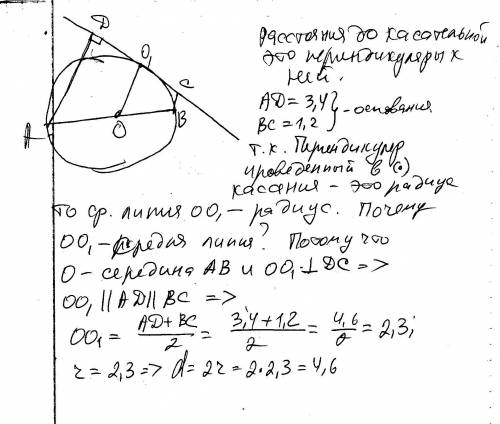 D
O₁
C
B
O
A
Расстояния до касательной
это перпендикуляры к
ней.
AD = 3,4
BC = 1,2 } - основания
т.к. Перпендикуляр
проведенный в (•)
касания - это радиус
то ср. линия OO₁ - радиус. Почему
OO₁ - средняя линия? Потому что
O - середина AB и OO₁ ⊥ DC =>
OO₁ || AD || BC =>
OO₁ = (AD + BC)/2 = (3,4 + 1,2)/2 = 4,6/2 = 2,3;
r = 2,3 => d = 2r = 2·2,3 = 4,6